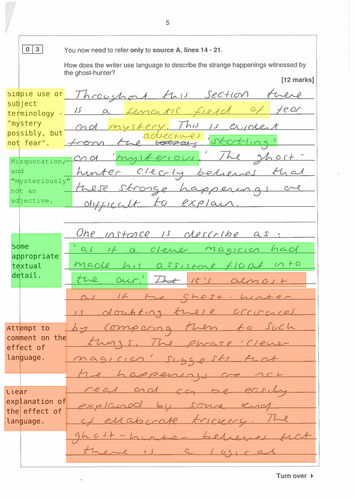 5
0 3 You now need to refer only to source A, lines 14 - 21.
How does the writer use language to describe the strange happenings witnessed by
the ghost-hunter?
[12 marks]
Simple use of
subject
terminology -
"mystery
possibly, but
not fear".
Throughout this section there
is a semantic field of fear
and mystery. This is evident
adjectives
from the 'startling'
Misquotation,
and
"mysteriously"
not an
adjective.
and 'mysterious'. The ghost-
hunter clearly believes that
these strange happenings are
difficult to explain.
One instance is describe as:
Some
appropriate
textual
detail.
'as if a clever magician had
made his assistant float into
the air.' The it's almost
as if the ghost-hunter
is doubting these
Attempt to
comment on the
effect of
language.
by comparing them to such
things. The phrase 'clever
magician' suggests that
the happenings are not
Clear
explanation of
the effect of
language.
real and can be easily
explained by some kind
of elaborate trickery. The
ghost-hunter believes that
there is a logical
Turn over